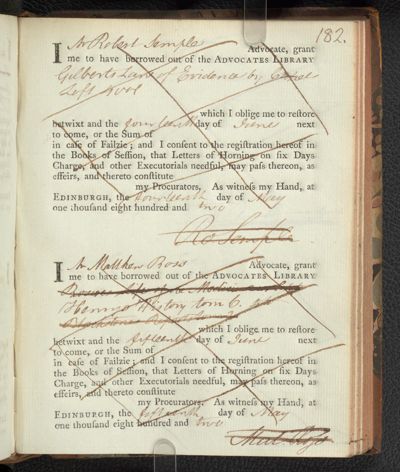 182.
I Mr Robert Semple Advocate, grant
me to have borrowed out of the ADVOCATES LIBRARY
Gilberts Law of Evidence by
Loft 4 vol
which I oblige me to restore
betwixt and the fourteenth day of June next
to come, or the Sum of
in case of Failzie; and I consent to the registration hereof in
the Books of Session, that Letters of Horning on six Days
Charge, and other Executorials needful, may pass thereon, as
effeirs, and thereto constitute
my Procurators, As witness my Hand, at
EDINBURGH, the fourteenth day of May
one thousand eight hundred and two
Ro Semple
I Mr Matthew Ross Advocate, grant
me to have borrowed out of the ADVOCATES LIBRARY
Henrys History tom 6.
which I oblige me to restore
betwixt and the fifteenth day of June next
to come, or the Sum of
in case of Failzie; and I consent to the registration hereof in
the Books of Session, that Letters of Horning on six Days
Charge, and other Executorials needful, may pass thereon, as
effeirs, and thereto constitute
my Procurators, As witness my Hand, at
EDINBURGH, the fifteenth day of May
one thousand eight hundred and two
Mat. Ross